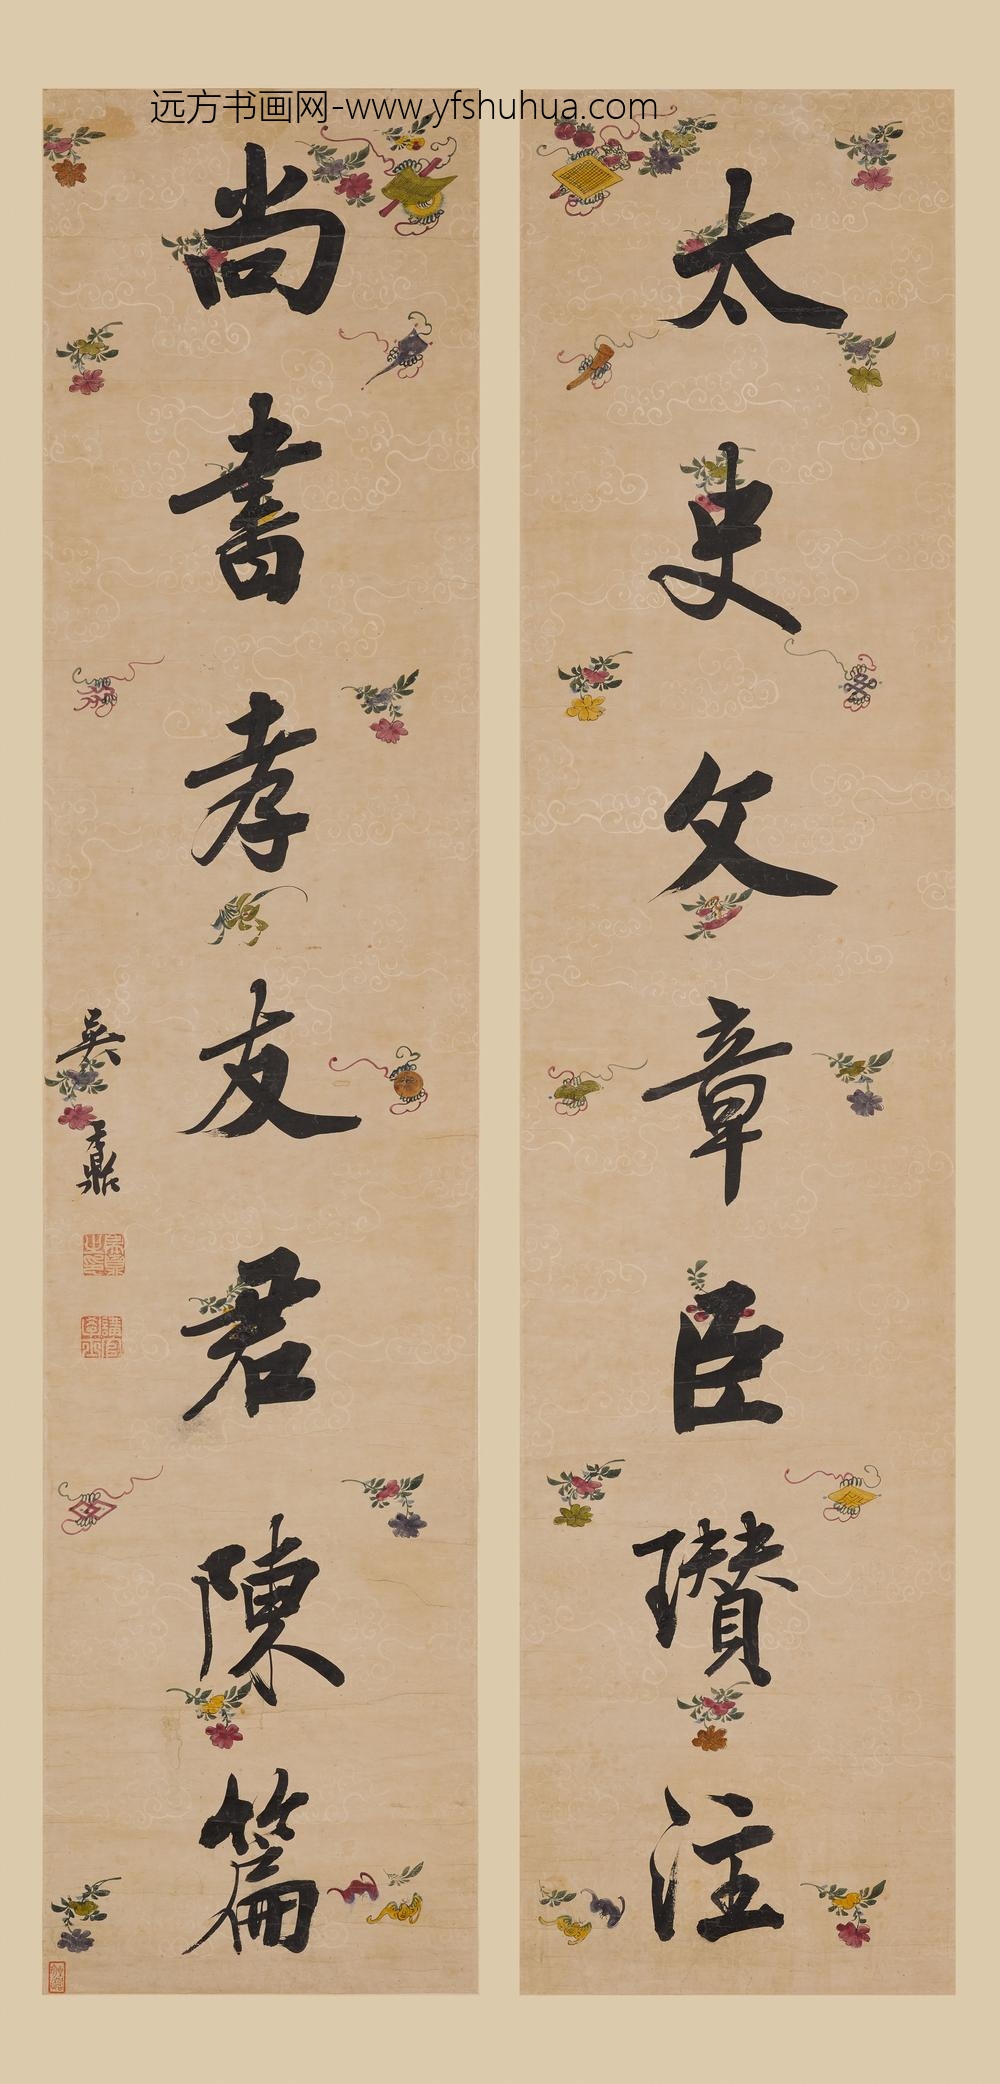 远方书画网-www.yfshuhua.com
太史文章臣瓚注
尚書孝友君陳篇
吳鼒